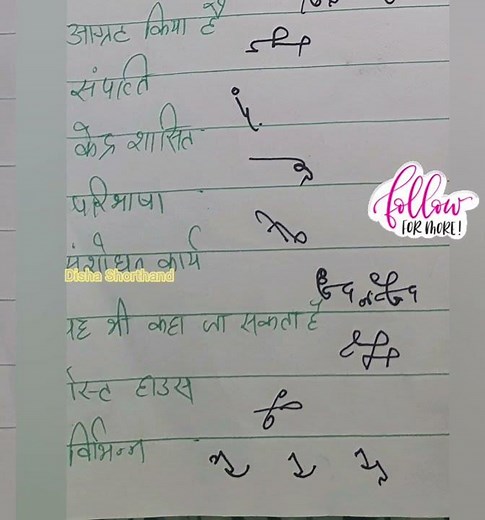 आग्रह किया है
संपत्ति
केंद्र शासित
परिभाषा
follow
FOR MORE!
संशोधन कार्य
Disha Shorthand
यह भी कहा जा सकता है
रेस्ट हाउस
विभिन्न